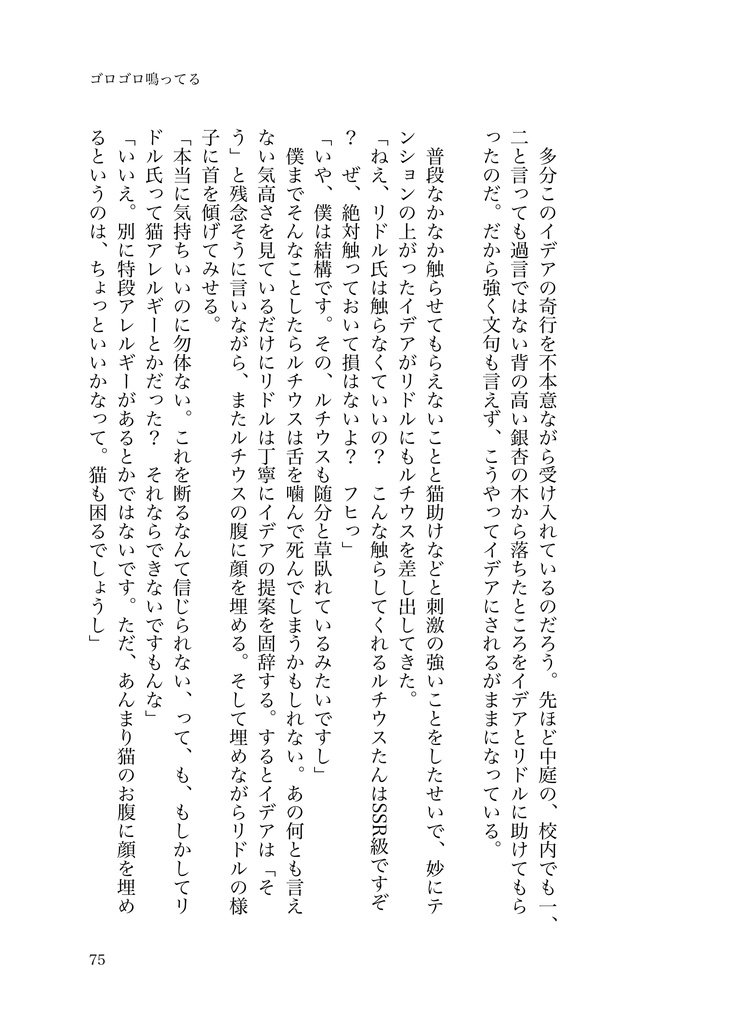 ゴロゴロ鳴ってる
　多分このイデアの奇行を不本意ながら受け入れているのだろう。先ほど中庭の、校内でも一、
二と言っても過言ではない背の高い銀杏の木から落ちたところをイデアとリドルに助けてもら
ったのだ。だから強く文句も言えず、こうやってイデアにされるがままになっている。
　普段なかなか触らせてもらえないことと猫助けなどと刺激の強いことをしたせいで、妙にテ
ンションの上がったイデアがリドルにもルチウスを差し出してきた。
「ねえ、リドル氏は触らなくていいの？　こんな触らしてくれるルチウスたんはSSR級ですぞ
？　ぜ、絶対触っておいて損はないよ？　フヒっ」
「いや、僕は結構です。その、ルチウスも随分と草臥れているみたいですし」
　僕までそんなことしたらルチウスは舌を噛んで死んでしまうかもしれない。あの何とも言え
ない気高さを見ているだけにリドルは丁寧にイデアの提案を固辞する。するとイデアは「そ
う」と残念そうに言いながら、またルチウスの腹に顔を埋める。そして埋めながらリドルの様
子に首を傾げてみせる。
「本当に気持ちいいのに勿体ない。これを断るなんて信じられない、って、も、もしかしてリ
ドル氏って猫アレルギーとかだった？　それならできないですもんな」
「いいえ。別に特段アレルギーがあるとかではないです。ただ、あんまり猫のお腹に顔を埋め
るというのは、ちょっといいかなって。猫も困るでしょうし」
75